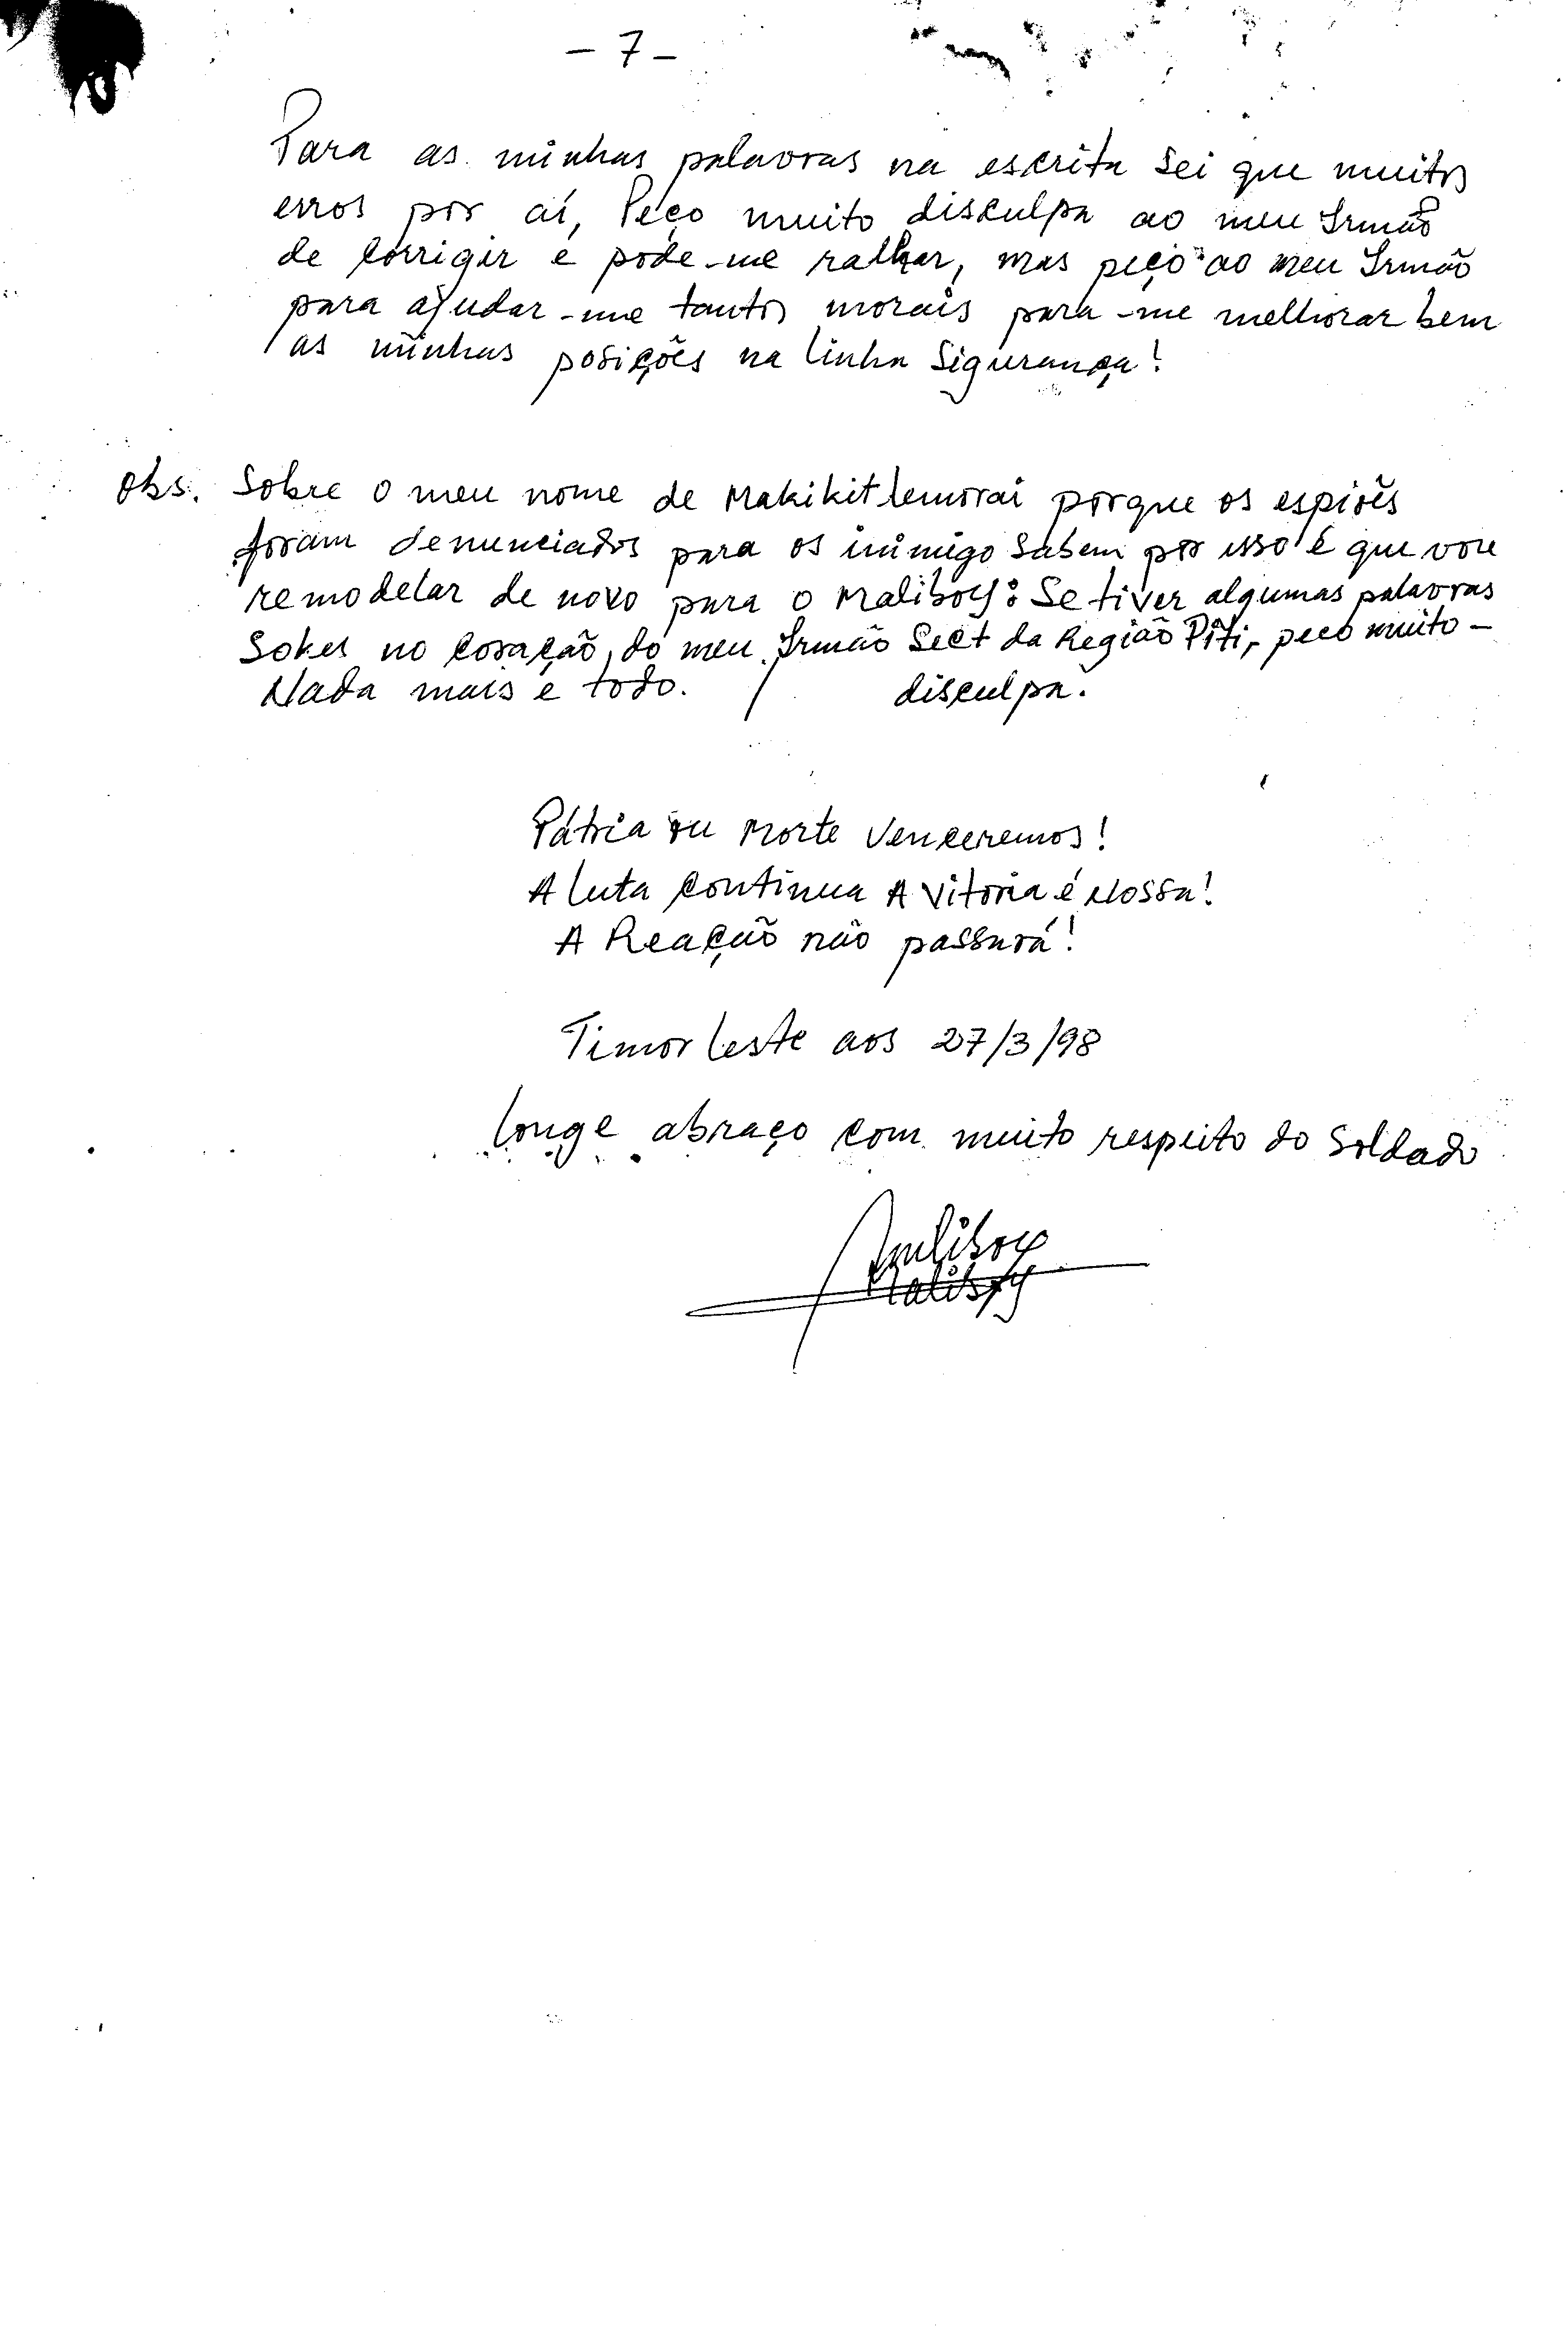 - 7 -
Para as minhas palavras na escrita sei que muitos
erros por aí, Peço muito disculpa ao meu Irmão
de corrigir e pode-me ralhar, mas peço ao meu Irmão
para ajudar-me tantos morais para-me melhorar bem
as minhas posições na linha Sigurança!
Obs. Sobre o meu nome de Makikit lemorai porque os espiões
foram denunciados para os inimigo sabem por isso é que vou
remodelar de novo para o Maliboy: Se tiver algumas palavras
no coração, do meu Irmão Sect da Região Piti, peço muito -
Nada mais e todo. / disculpa.
Pátria ou Morte Venceremos!
A luta continua A Vitoria é Nossa!
A Reação não passará!
Timor leste aos 27/3/98
Longe abraço com muito respeito do Soldado
Maliboy
Maliboy